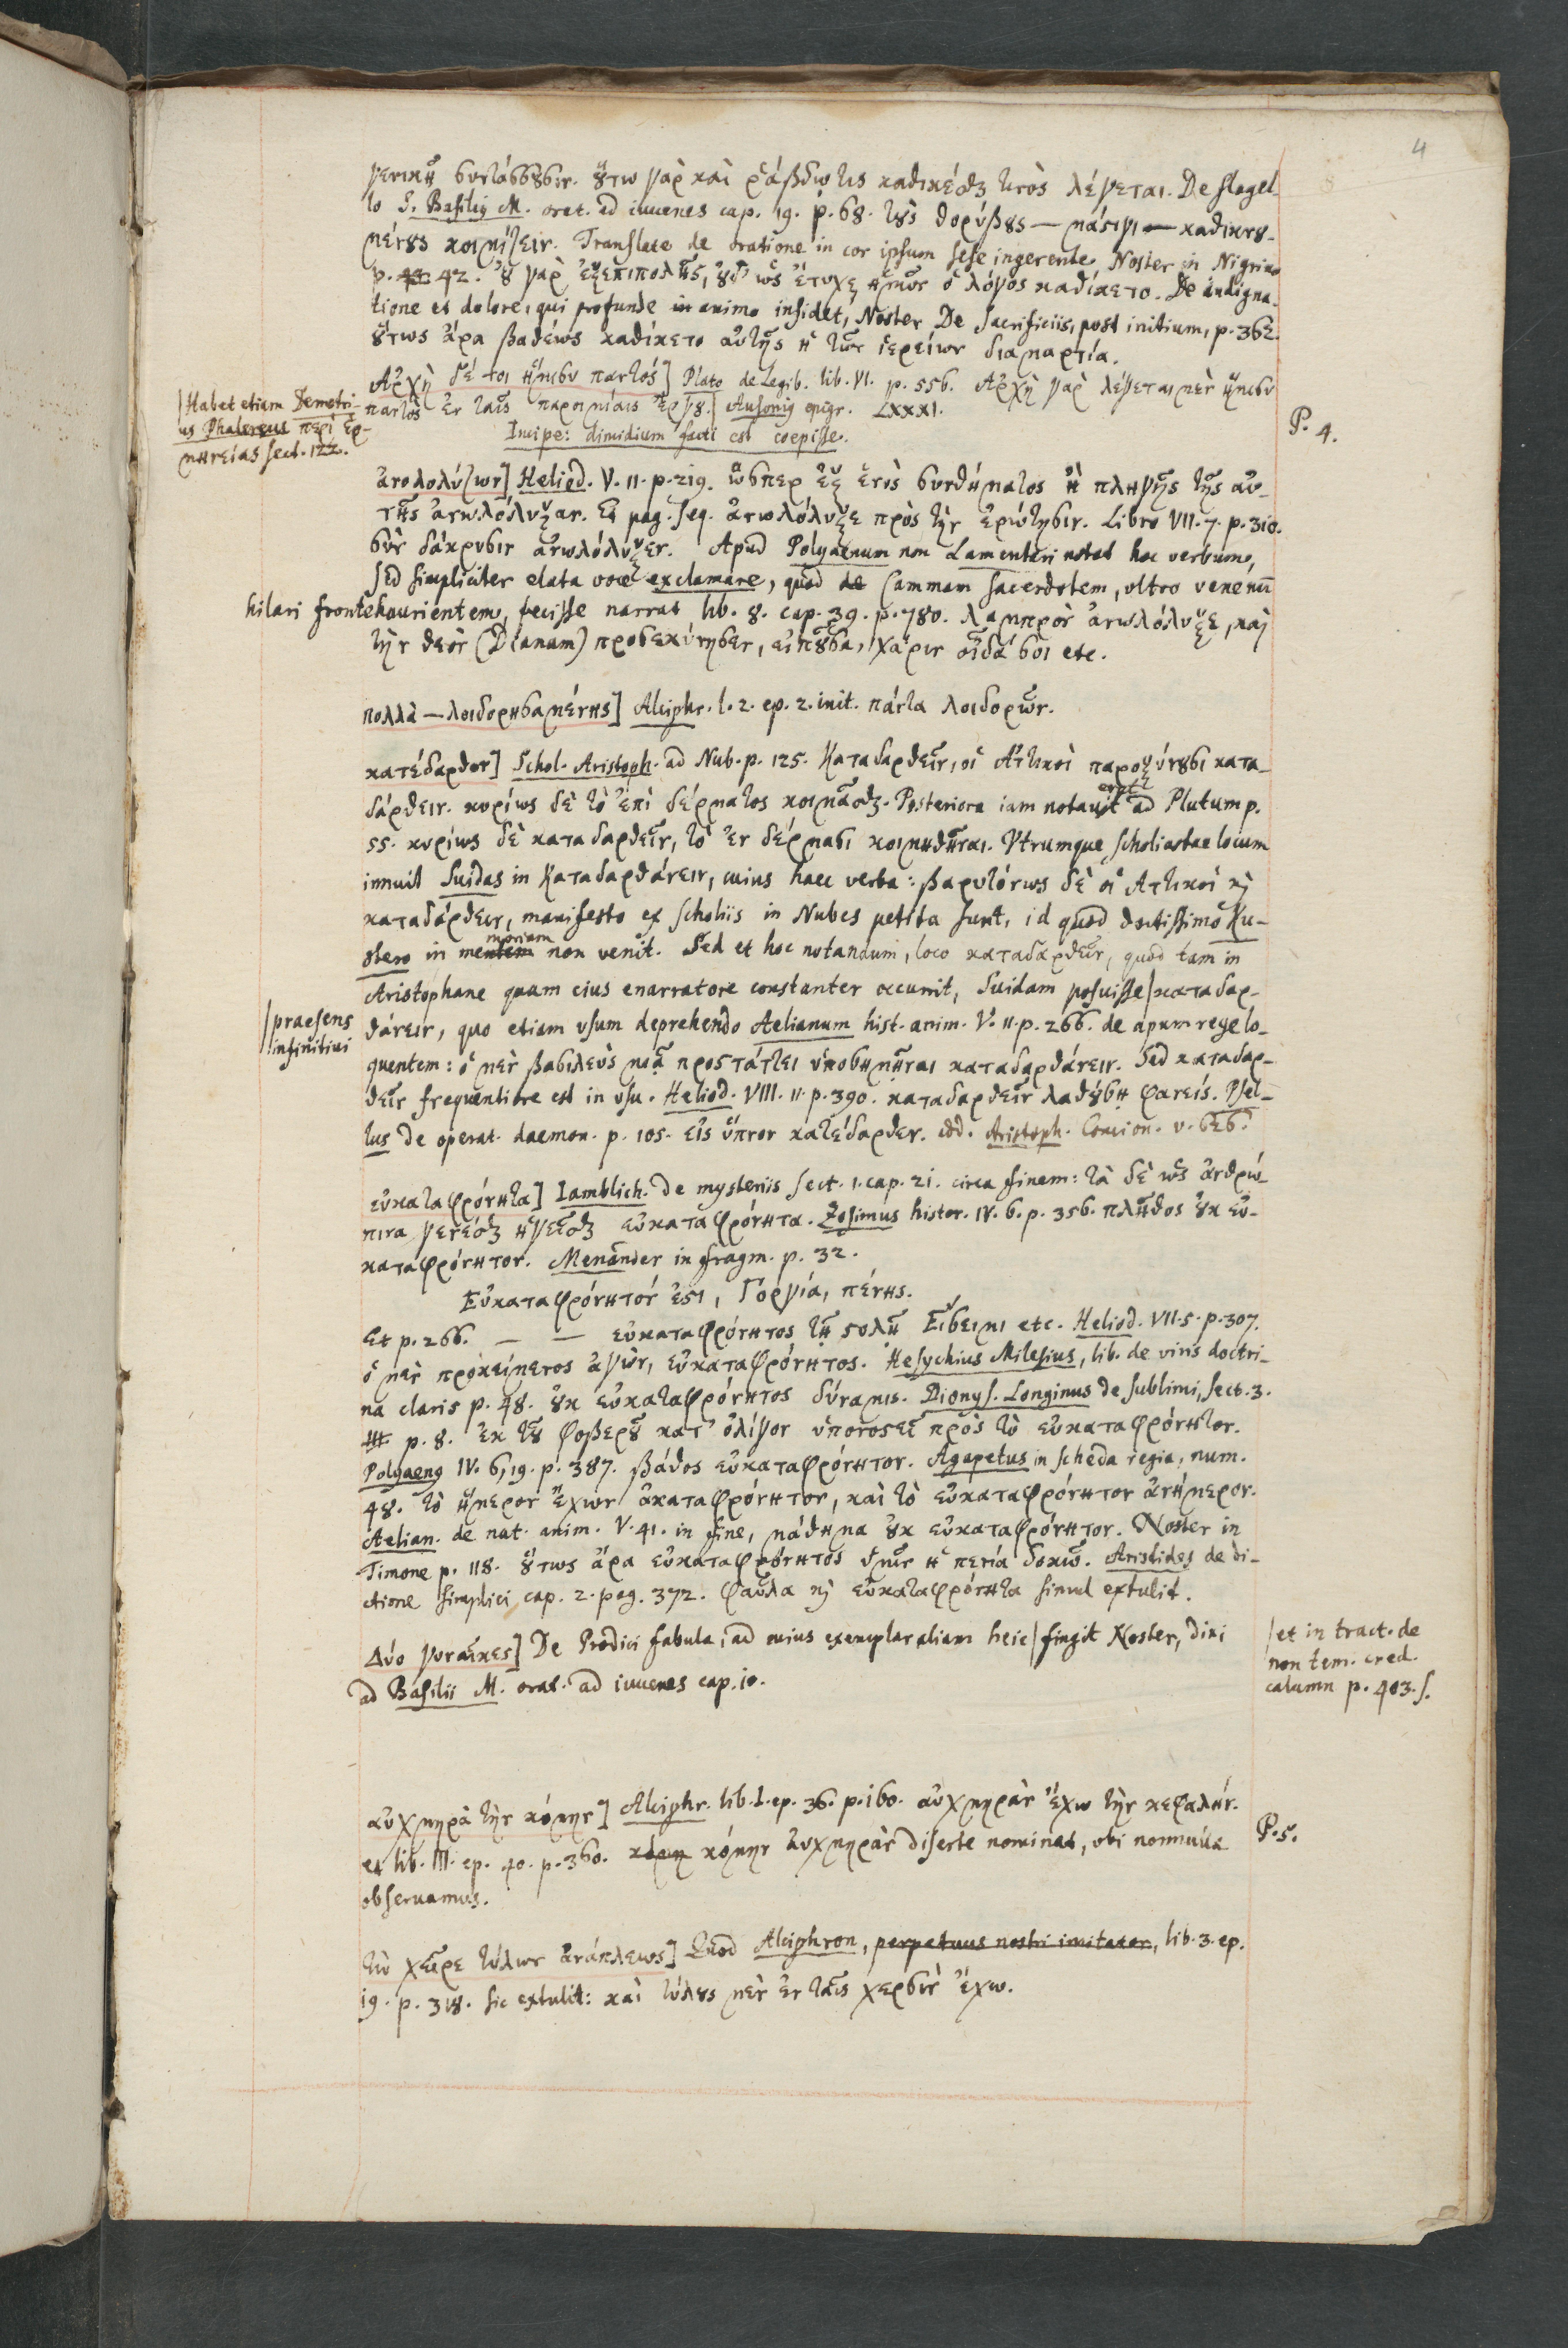 4
γενικῇ συντάσσουσιν. οὕτω γὰρ καὶ ῥάβδῳ τις καθικέσθαι τινὸς λέγεται. De flagel-
lo S. Basilius M. orat. ad iuuenes cap. 19. p. 68. τοὺς θορύβους — μάστιγι — καθικνου-
μένους κοιμίζειν. Translate de oratione in cor ipsum sese ingerente Noster in Nigrino
p. 42. οὐ γὰρ ἐξεπιπολῆς, οὐδ' ὡς ἔτυχεν ἡμῶν ὁ λόγος καθίκετο. De indigna-
tione et dolore, qui profunde in animo insidet, Noster De Sacrificiis, post initium, p. 362.
οὕτως ἄρα βαθέως καθίκετο αὐτῆς ἡ τῶν ἱερείων διαμαρτία.
Ἀρχὴ δέ τοι ἥμισυ παντός] Plato de Legib. lib. VI. p. 556. Ἀρχὴ γὰρ λέγεται μὲν ἥμισυ
παντὸς ἐν ταῖς παροιμίαις ἔργου. | Ausonius epigr. LXXXI.
Incipe: dimidium facti est coepisse.
|Habet etiam Demetri-
us Phalereus περὶ ἑρ-
μηνείας sect. 122.
P. 4.
ἀνολολύζων] Heliod. V. 11. p. 219. ὥσπερ ἐξ ἑνὸς συνθήματος ἢ πληγῆς τῆς αὐ-
τῆς ἀνωλόλυξαν. Et pag. seq. ἀνωλόλυξε πρὸς τὴν ἐρώτησιν. Libro VII. 7. p. 310.
σὺν δάκρυσιν ἀνωλόλυξεν. Apud Polyaenum non Lamentari notat hoc verbum,
sed simpliciter elata voce exclamare, quod Cammam sacerdotem, vltro venenū
hilari fronte haurientem, fecisse narrat lib. 8. cap. 39. p. 780. λαμπρὸν ἀνωλόλυξε, καὶ
τὴν θεὸν (Dianam) προσεκύνησεν, εἰποῦσα, χάριν οἶδά σοι etc.
πολλὰ — λοιδορησαμένης] Alciphr. l. 2. ep. 2. init. πάντα λοιδορῶν.
κατέδαρθον] Schol. Aristoph. ad Nub. p. 125. Καταδαρθεῖν, οἱ Ἀττικοὶ παροξύνουσι κατα-
δάρθειν. κυρίως δὲ τὸ ἐπὶ δέρματος κοιμᾶσθαι. Posteriora iam notauit ad Plutum p.
55. κυρίως δὲ καταδαρθεῖν, τὸ ἐν δέρμασι κοιμηθῆναι. Vtrumque scholiastae locum
innuit Suidas in Καταδαρθάνειν, cuius haec verba: βαρυτόνως δὲ οἱ Ἀττικοί καὶ
καταδάρθειν, manifesto ex scholiis in Nubes petita sunt, id quod doctissimo Ku-
stero in memoriam non venit. Sed et hoc notandum, loco καταδαρθεῖν, quod tam in
Aristophane quam eius enarratore constanter occurrit, Suidam posuisse | καταδαρ-
|praesens
infinitiui
θάνειν, quo etiam vsum deprehendo Aelianum hist. anim. V. 11. p. 266. de apum rege lo-
quentem: ὁ μὲν βασιλεὺς μιᾷ προστάττει ὑποσημῆναι καταδαρθάνειν. Sed καταδαρ-
θεῖν frequentiore est in vsu. Heliod. VIII. 11. p. 390. καταδαρθεῖν λαθούσῃ φανείς. Psel-
lus de operat. daemon. p. 105. εἰς ὕπνον κατέδαρθεν. add. Aristoph. Concion. v. 626.
εὐκαταφρόνητα] Iamblich. de mysteriis sect. 1. cap. 21. circa finem: τὰ δὲ ὡς ἀνθρώ-
πινα γενέσθαι ἡγεῖσθαι εὐκαταφρόνητα. Zosimus histor. IV. 6. p. 356. πλῆθος οὐκ εὐ-
καταφρόνητον. Menander in fragm. p. 32.
Εὐκαταφρόνητόν ἐστι, Γοργία, πένης.
Et p. 266. — — εὐκαταφρόνητος τῇ στολῇ Εἴσειμι etc. Heliod. VII. 5. p. 307.
ὁ μὲν προκείμενος ἀγὼν, εὐκαταφρόνητος. Hesychius Milesius, lib. de viris doctri-
na claris p. 48. οὐκ εὐκαταφρόνητος δύναμις. Dionys. Longinus de sublimi, sect. 3.
p. 8. ἐκ τοῦ φοβεροῦ κατ' ὀλίγον ὑπονοστεῖ πρὸς τὸ εὐκαταφρόνητον.
Polyaenus IV. 6, 19. p. 387. βάθος εὐκαταφρόνητον. Agapetus in scheda regia, num.
48. τὸ ἥμερον ἔχων ἀκαταφρόνητον, καὶ τὸ εὐκαταφρόνητον ἀνήμερον.
Aelian. de nat. anim. V. 41. in fine, μάθημα οὐκ εὐκαταφρόνητον. Noster in
Timone p. 118. οὕτως ἄρα εὐκαταφρόνητος ὑμῖν ἡ πενία δοκῶ. Aristides de di-
ctione simplici cap. 2. pag. 372. φαῦλα καὶ εὐκαταφρόνητα simul extulit.
Δύο γυναῖκες] De Prodici fabula, ad cuius exemplar aliam heic | fingit Noster, dixi
ad Basilii M. orat. ad iuuenes cap. 10.
|et in tract. de
non tem. cred.
calumn p. 403. s.
αὐχμηρὰ τὴν κόμην] Alciphr. lib. I. ep. 36. p. 160. αὐχμηρὰν ἔχω τὴν κεφαλήν.
et lib. III. ep. 40. p. 360. κόμην αὐχμηρὰν diserte nominat, vbi nonnulla
obseruamus.
P. 5.
τὼ χεῖρε τύλων ἀνάπλεως] Quod Alciphron, perpetuus nostri imitator, lib. 3. ep.
19. p. 318. sic extulit: καὶ τύλους μὲν ἐν ταῖς χερσὶν ἔχω.